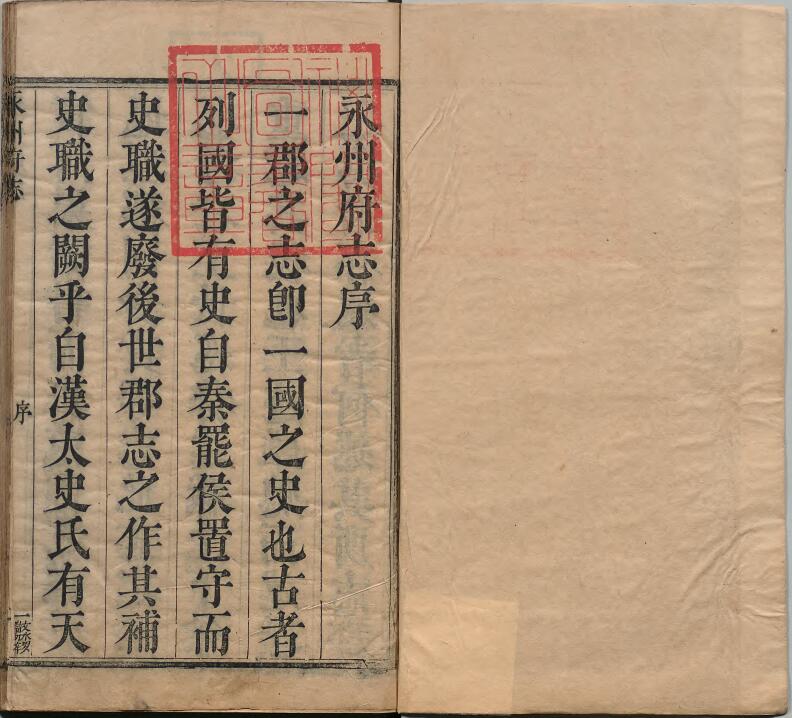 永州府志序
一郡之志卽一國之史也古者
列國皆有史自秦罷侯置守而
史職遂廢後世郡志之作其補
史職之闕乎自漢太史氏有天
永州府志
序
一